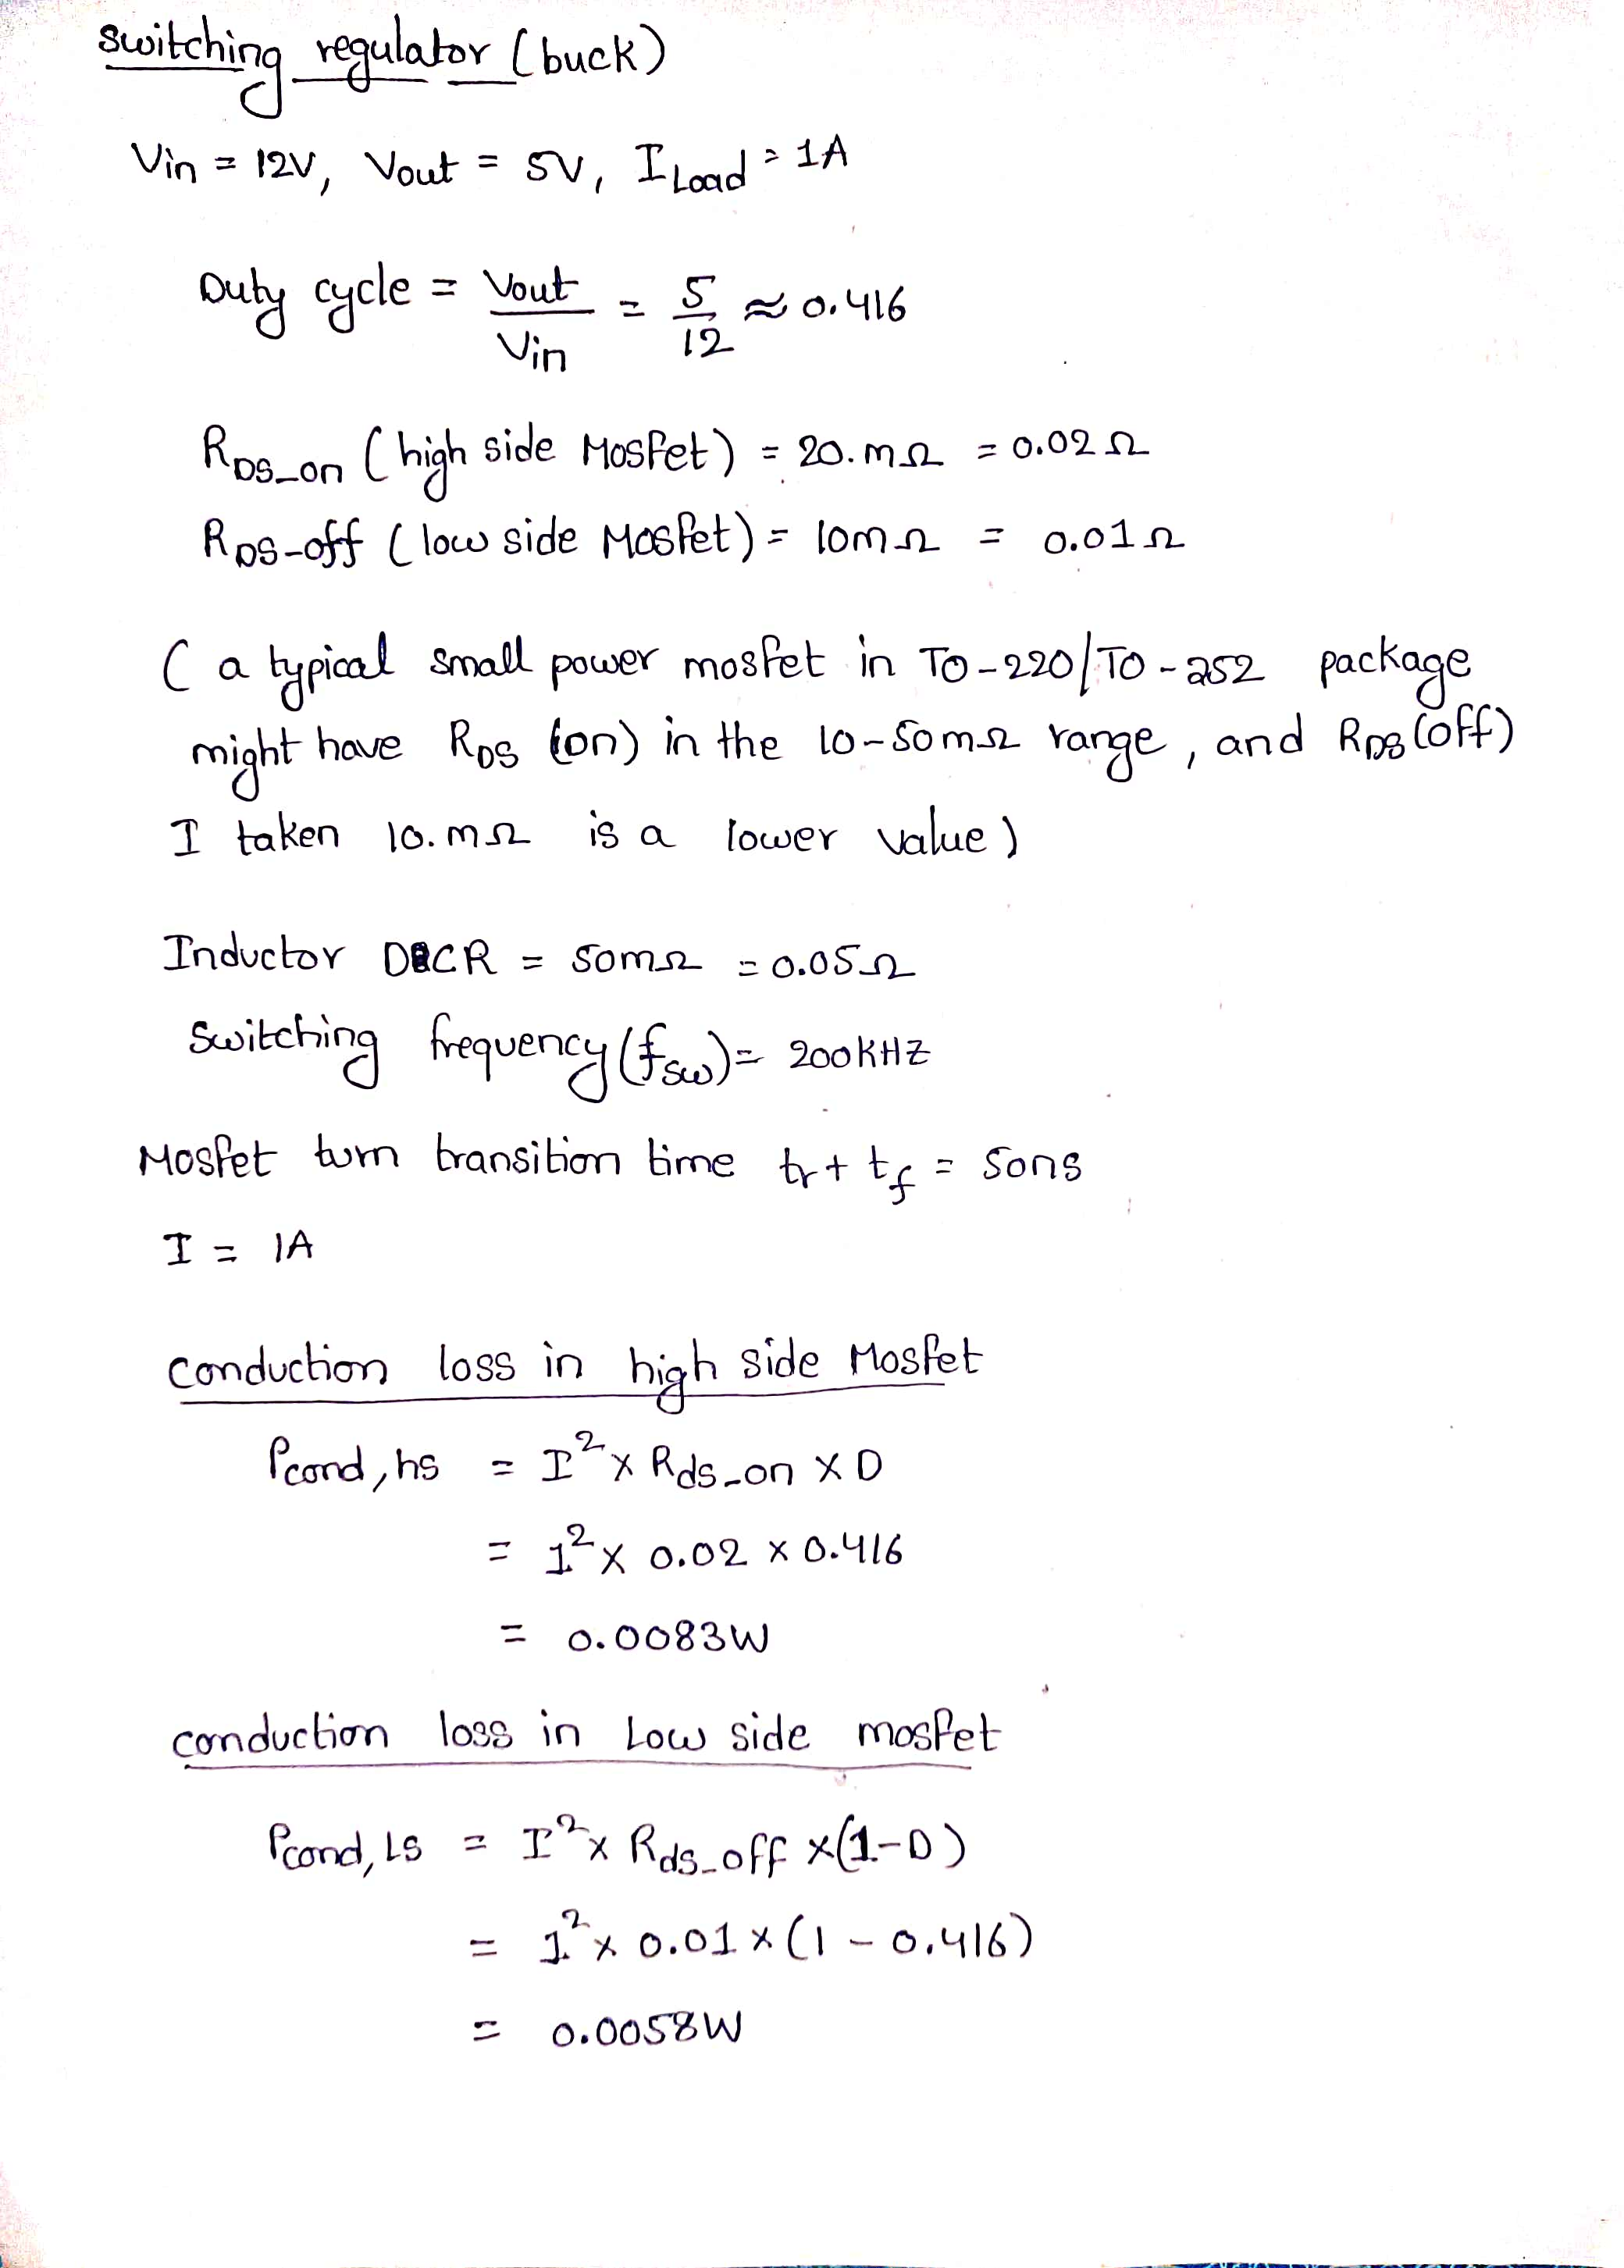 switching regulator (buck)
Vin = 12V, Vout = 5V, I Load = 1A
Duty cycle = Vout / Vin = 5 / 12 ≈ 0.416
RDS_on (high side Mosfet) = 20.mΩ = 0.02Ω
RDS-off (low side Mosfet) = 10mΩ = 0.01Ω
( a typical small power mosfet in TO-220/TO-252 package
might have RDS (on) in the 10-50mΩ range, and RDS(off)
I taken 10.mΩ is a lower value)
Inductor DCR = 50mΩ = 0.05Ω
Switching frequency(fsw) = 200KHZ
Mosfet turn transition time tr + tf = 50ns
I = 1A
conduction loss in high side Mosfet
Pcond,hs = I² x Rds_on x D
= 1² x 0.02 x 0.416
= 0.0083W
conduction loss in Low side mosfet
Pcond, LS = I² x Rds_off x(1-D)
= 1² x 0.01 x (1 - 0.416)
= 0.0058W